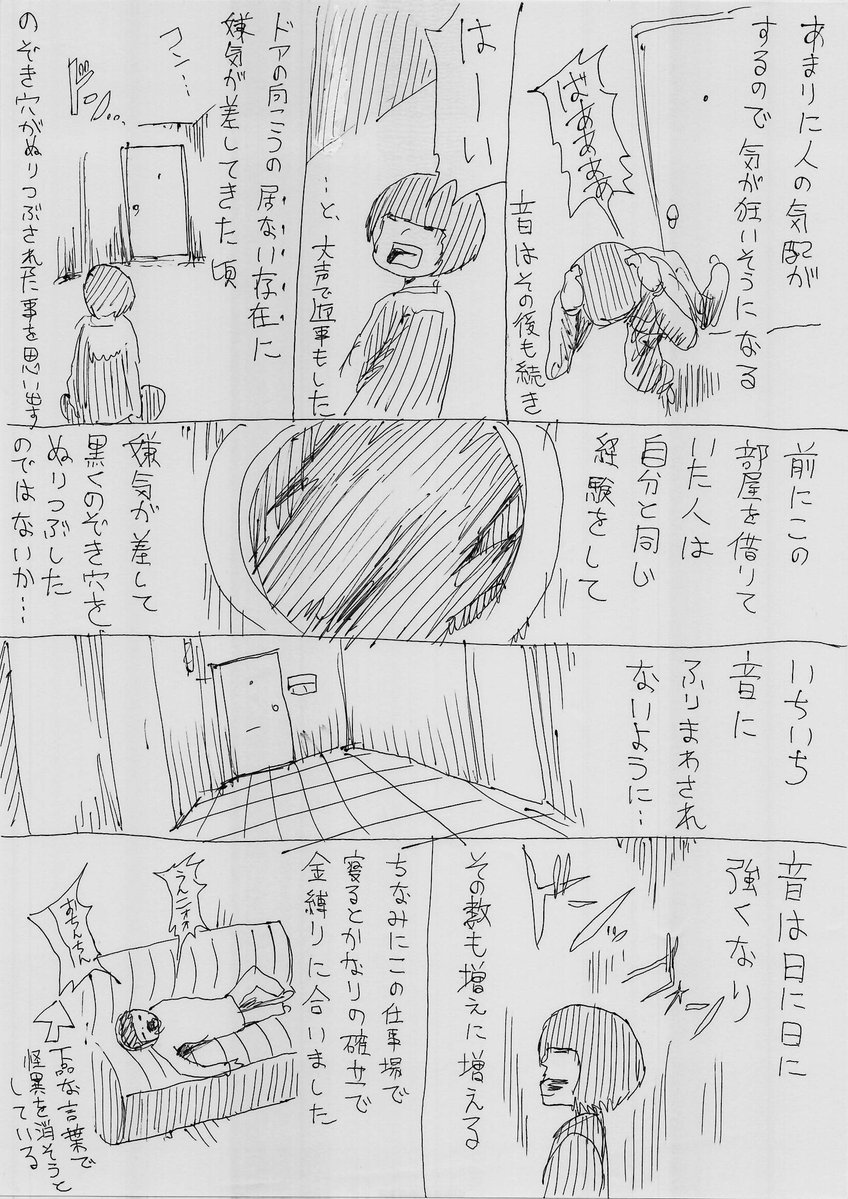 あまりに人の気配が
するので気が狂いそうになる
ばああああ
音はその後も続き
はーい
…と、大声で返事もした
ドアの向こうの居ない存在に
嫌気が差してきた頃
コン…
ドン…
のぞき穴がぬりつぶされた事を思い出す
前にこの
部屋を借りて
いた人は
自分と同じ
経験をして
嫌気が差して
黒くのぞき穴を
ぬりつぶした
のではないか…
いちいち
音に
ふりまわされ
ないように…
音は日に日に
強くなり
その数も増えに増える
ちなみにこの仕事場で
寝るとかなりの確立で
金縛りに合いました
うんこォォ
おちんちん
下品な言葉で
怪異を消そうと
している